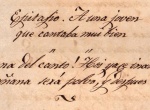 Epitafio. A una joven
que cantaba mui bien
na del canto! Hoi
ñana será polvo, y despues